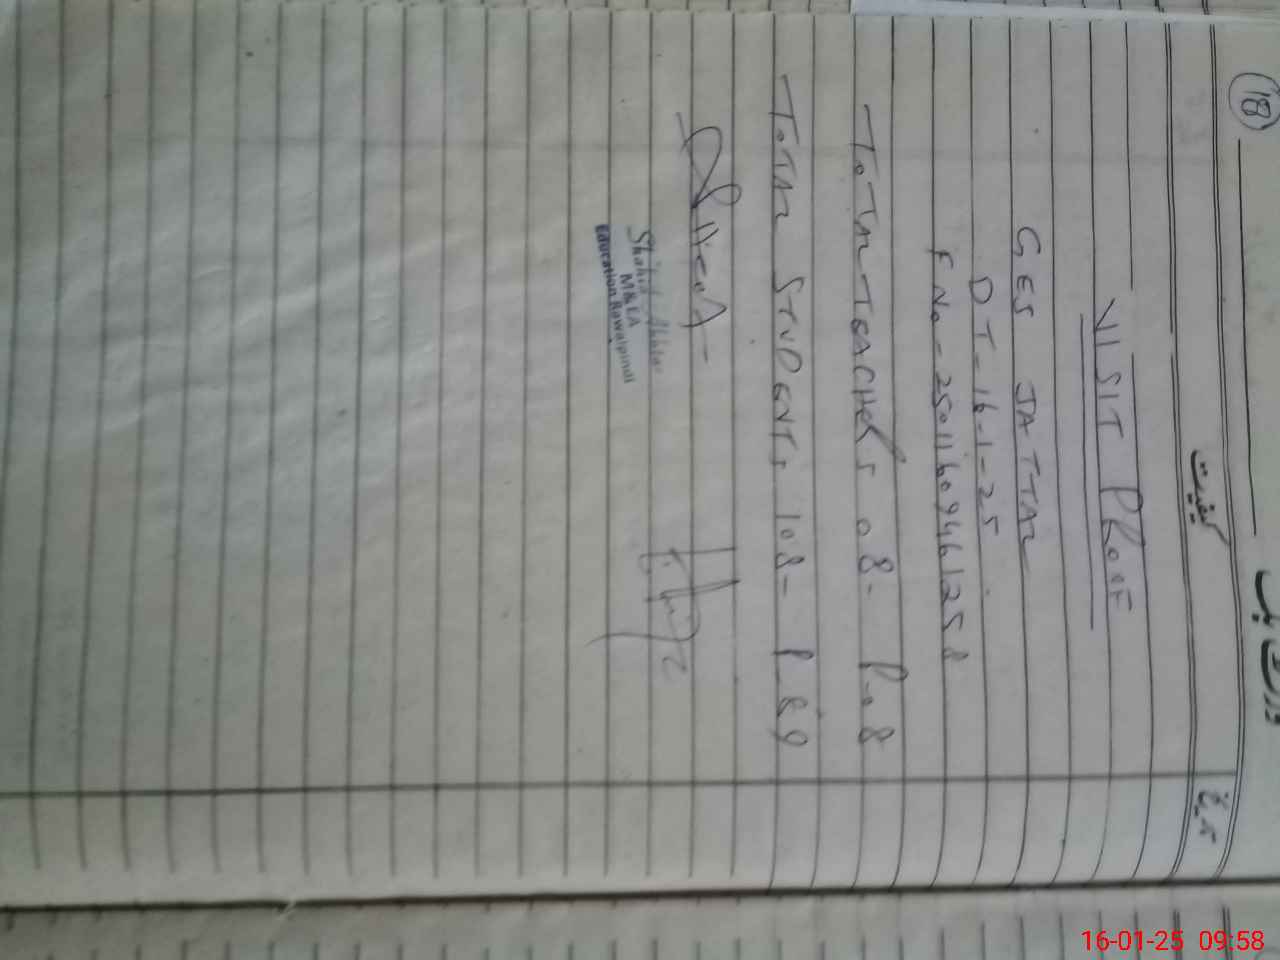 18
کیفیت
تاریخ
VISIT PROOF
GES JATTAL
DT-16-1-25
F No-25011609461258
TOTAL TEACHERS 08- P-08
TOTAL STUDENTS 108- P-89
Shahid Akhtar
M&EA
Education Rawalpindi
16-01-25 09:58